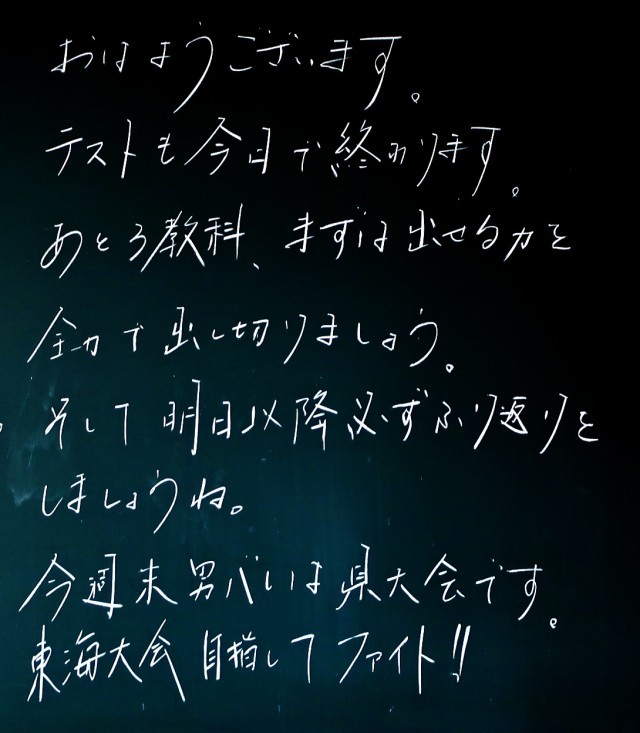 おはようございます。
テストも今日で終わります。
あと3教科、まずは出せる力を
全力で出し切りましょう。
そして明日以降必ずふり返りを
しましょうね。
今週末男バレは県大会です。
東海大会目指してファイト!!